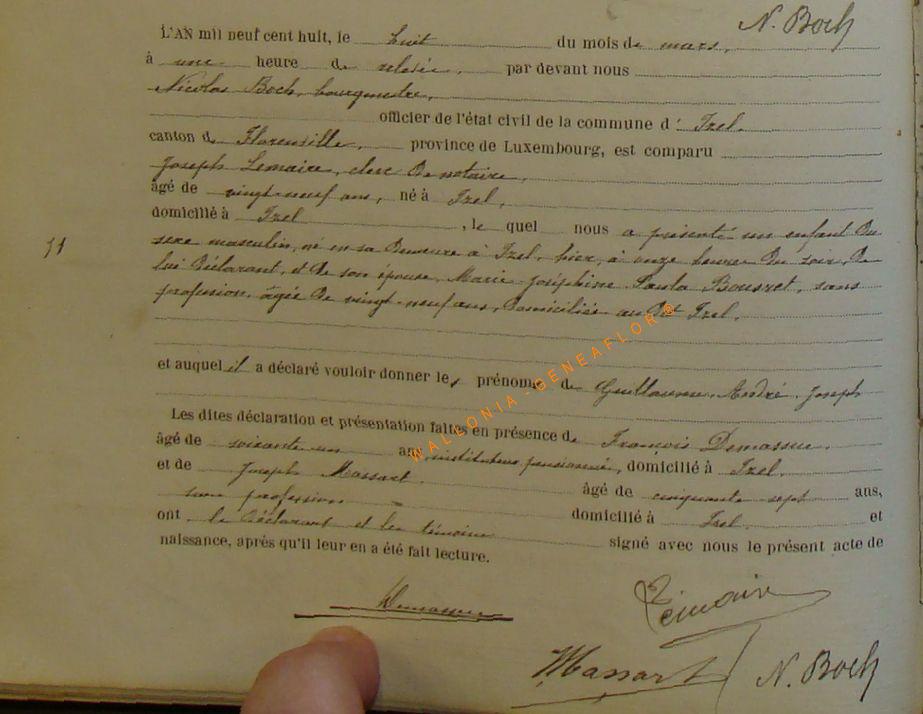 N. Boch
L'AN mil neuf cent huit, le huit du mois de mars,
à une heure de relevée, par devant nous
Nicolas Boch, bourgmestre,
officier de l'état civil de la commune d' Izel.
canton de Florenville, province de Luxembourg, est comparu
Joseph Lemaire, clerc de notaire,
âgé de vingt-neuf ans, né à Izel,
domicilié à Izel, le quel nous a présenté un enfant du
sexe masculin, né en sa demeure à Izel, hier, à onze heures du soir, de
lui déclarant, et de son épouse, Marie Joséphine Paula, sans
profession, âgée de vingt-neuf ans, domiciliée au dit Izel.
et auquel il a déclaré vouloir donner les prénoms de Guillaume, André, Joseph
Les dites déclaration et présentation faites en présence de François Demasure.
âgé de soixante un ans, instituteur pensionné, domicilié à Izel.
et de Joseph Massart. âgé de cinquante sept ans,
sans profession domicilié à Izel. et
ont le déclarant et les témoins signé avec nous le présent acte de
naissance, après qu'il leur en a été fait lecture.
Lemaire
Massart N. Boch
WALLONIA-GENEAFLOR